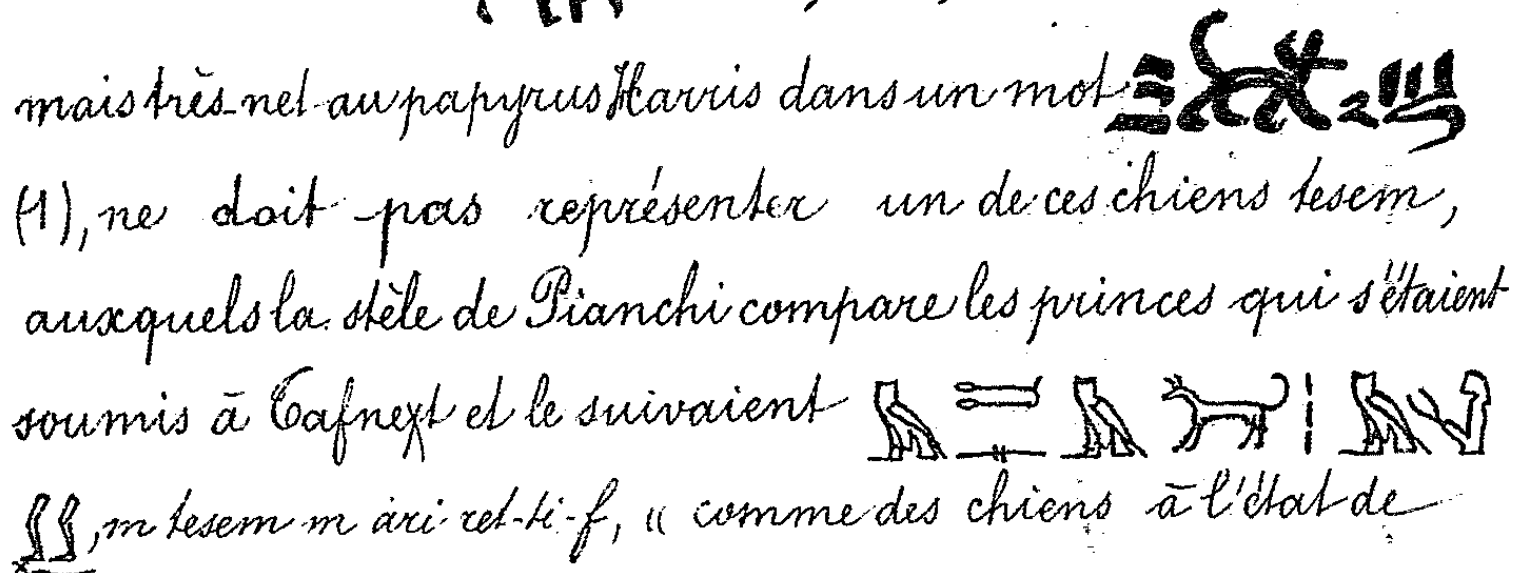 mais très-net au papyrus Harris dans un mot
(1), ne doit pas représenter un de ces chiens tesem,
auxquels la stèle de Pianchi compare les princes qui s'étaient
soumis à Tafneχt et le suivaient
, m tesem m ȧri ret-ti-f, « comme des chiens à l'état de